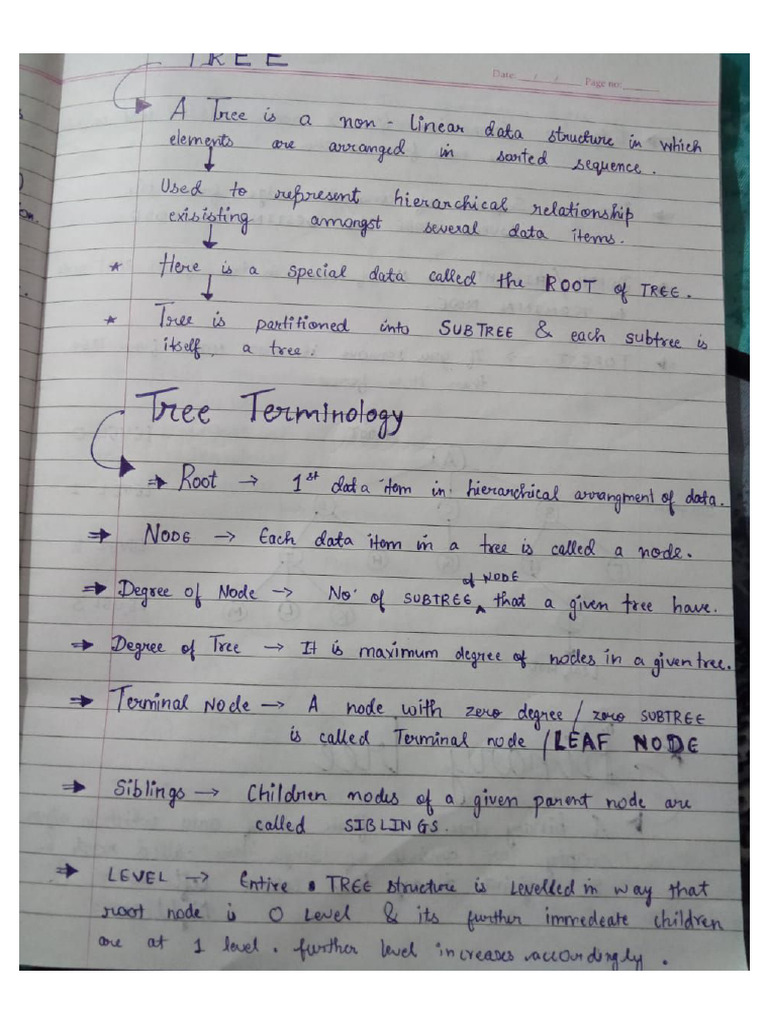 TREE
Date: __/__/__ Page no:____
A Tree is a non-linear data structure in which
elements are arranged in sorted sequence.
Used to represent hierarchical relationship
exisisting amongst several data items.
* Here is a special data called the ROOT of TREE.
* Tree is partitioned into SUBTREE & each subtree is
itself, a tree.
Tree Terminology
⇒ Root → 1st data item in hierarchical arrangment of data.
⇒ NODE → Each data item in a tree is called a node.
of NODE
⇒ Degree of Node → No. of SUBTREE ^ that a given tree have.
⇒ Degree of Tree → It is maximum degree of nodes in a given tree.
⇒ Terminal NODE → A node with zero degree / zero SUBTREE
is called Terminal node / LEAF NODE
⇒ Siblings → Children nodes of a given parent node are
called SIBLINGS.
⇒ LEVEL → Entire TREE structure is Levelled in way that
root node is 0 Level & its further immedeate children
are at 1 level. further level increases accordingly.